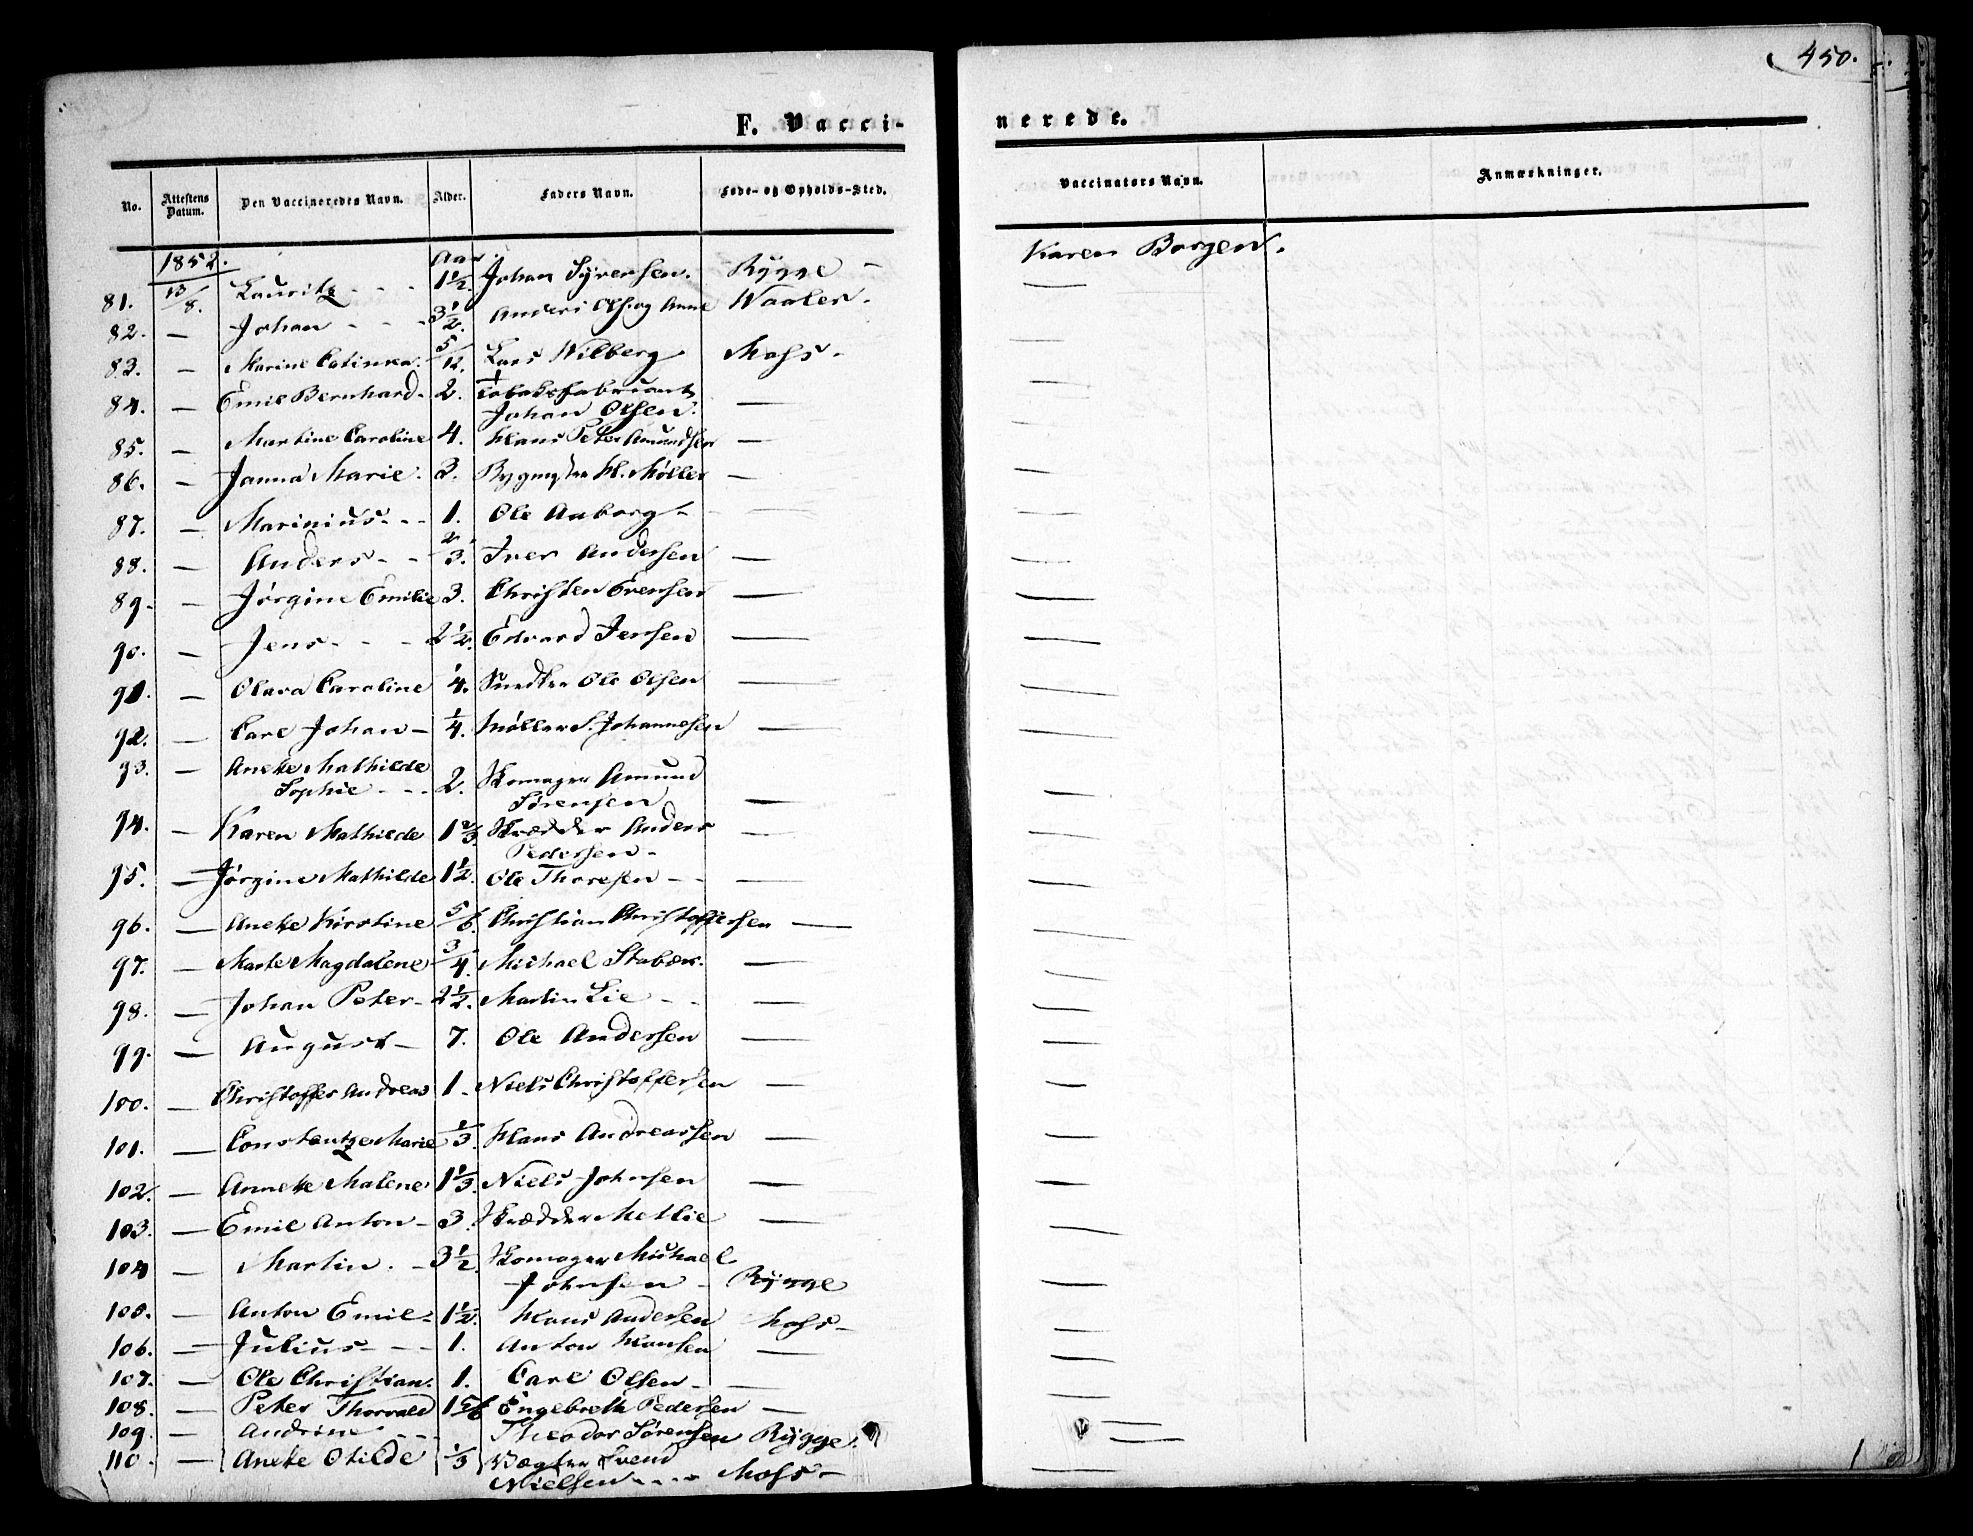 450.
F. Vacci-
nerede.
No. Attestens Datum. Den Vaccineredes Navn. Alder. Faders Navn. Føde- og Opholds-Sted. Vaccinators Navn. Anmærkninger.
1852. Aar
81. 13/8. Lauritz - - - 1 1/2. Johan Syversen. Rygge - Karen Borgen.
82. — Johan - - - 3 1/2. Anders Olsen Waaler. —
83. — Marine Catinka. 5/12. Lars Wilberg Moss - —
84. — Emil Bernhard - 2. Tobaksfabricant
Johan Olsen. — —
85. — Martine Caroline 4. Hans Peter Amundsen — —
86. — Janna Marie. 3. H. Møller — —
87. — Marinius - - - 1. Ole Aaborg - — —
88. — Anders - - 2/3. Iver Andersen — —
89. — Jørgine Emilie 3. Christen Evensen — —
90. — Jens - - - 2 1/2. Edvard Jensen — —
91. — Olava Caroline 1/4. Snedker Ole Olsen — —
92. — Carl Johan - 1/4. Møller S. Johannesen — —
93. — Anette Mathilde
Sophie - - - 2. Skomager Amund
Sørensen — —
94. — Karen Mathilde 1 2/3. Skrædder Anders
Pedersen - — —
95. — Jørgine Mathilde 1 1/2. Ole Thoresen - - — —
96. — Anette Kirstine 5/6. Christian Christoffersen — —
97. — Marte Magdalene 3/4. Michael Stabæk. — —
98. — Johan Peter - 2 1/2. Martin Lie - - — —
99. — August - 7. Ole Andersen — —
100. — Christoffer Andreas 1 - Niels Christoffersen — —
101. — Constantze Marie 1/3. Hans Andreassen — —
102. — Annette Malene 1 1/3. Niels Johnsen — —
103. — Emil Anton - 3. Skrædder Metlie — —
104 — Martin. - 3 1/2. Skomager Michael
Johnsen - Rygge —
105. — Anton Emil - 1 1/2. Hans Andersen Moss - —
106. — Julius - - - 1. Anton Hansen — —
107. — Ole Christian. 1. Carl Olsen - — —
108. — Peter Thorvald 1 5/6 Engebreth Pedersen — —
109. — Andrine - - - Theodor Sørensen Rygge. —
110. — Anette Otilde 1/3 Vægter Svend
Nielsen - - - - Moss - —